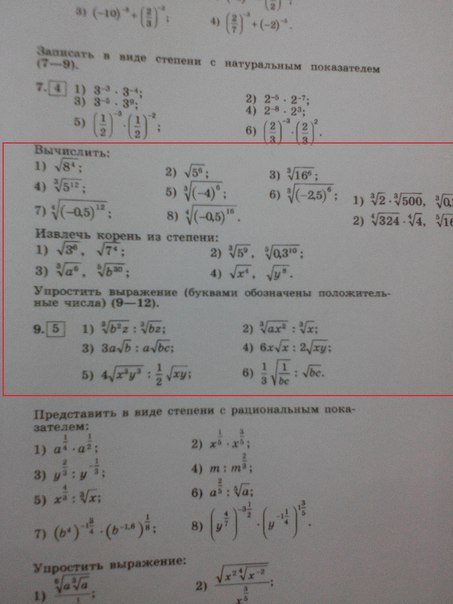 3) (−10)⁻³ + (2/3)⁻³;
4) (2/7)⁻³ + (−2)⁻⁵.
Записать в виде степени с натуральным показателем
(7—9).
7. 4 1) 3⁻³ · 3⁻⁴; 2) 2⁻⁵ · 2⁻⁷;
3) 3⁻⁵ · 3⁹; 4) 2⁻⁸ · 2³;
5) (1/2)⁻³ · (1/2)⁻²; 6) (2/3)⁻³ · (2/3)².
Вычислить:
1) √8⁴; 2) √5⁶; 3) ∛16⁶;
4) ∛5¹²; 5) ∛(−4)⁶; 6) ∛(−2,5)⁶;
1) ∛2 · ∛500,
7) ∜(−0,5)¹²; 8) ∜(−0,5)¹⁶.
2) ∜324 · ∜4,
Извлечь корень из степени:
1) √3⁶, √7⁴; 2) ∛5⁹, ⁵√0,3¹⁰;
3) ∛a⁶, ⁵√b³⁰; 4) √x⁴, √y⁸.
Упростить выражение (буквами обозначены положитель-
ные числа) (9—12).
9. 5 1) ∛b²z : ∛bz; 2) ∛ax² : ∛x;
3) 3a√b : a√bc; 4) 6x√x : 2√xy;
5) 4√x³y³ : 1/2 √xy; 6) 1/3 √1/bc : √bc.
Представить в виде степени с рациональным пока-
зателем:
1) a^(1/4) · a^(1/2); 2) x^(1/5) · x^(3/5);
3) y^(2/3) : y^(−1/3); 4) m : m^(2/3);
5) x^(4/3) : ∛x; 6) a^(2/5) : ⁵√a;
7) (b⁴)^(−1 3/4) · (b^(−1,6))^(1/8); 8) (y^(4/7))^(−3 1/2) · (y^(−1 1/4))^(1 3/5).
Упростить выражение:
1)
2)